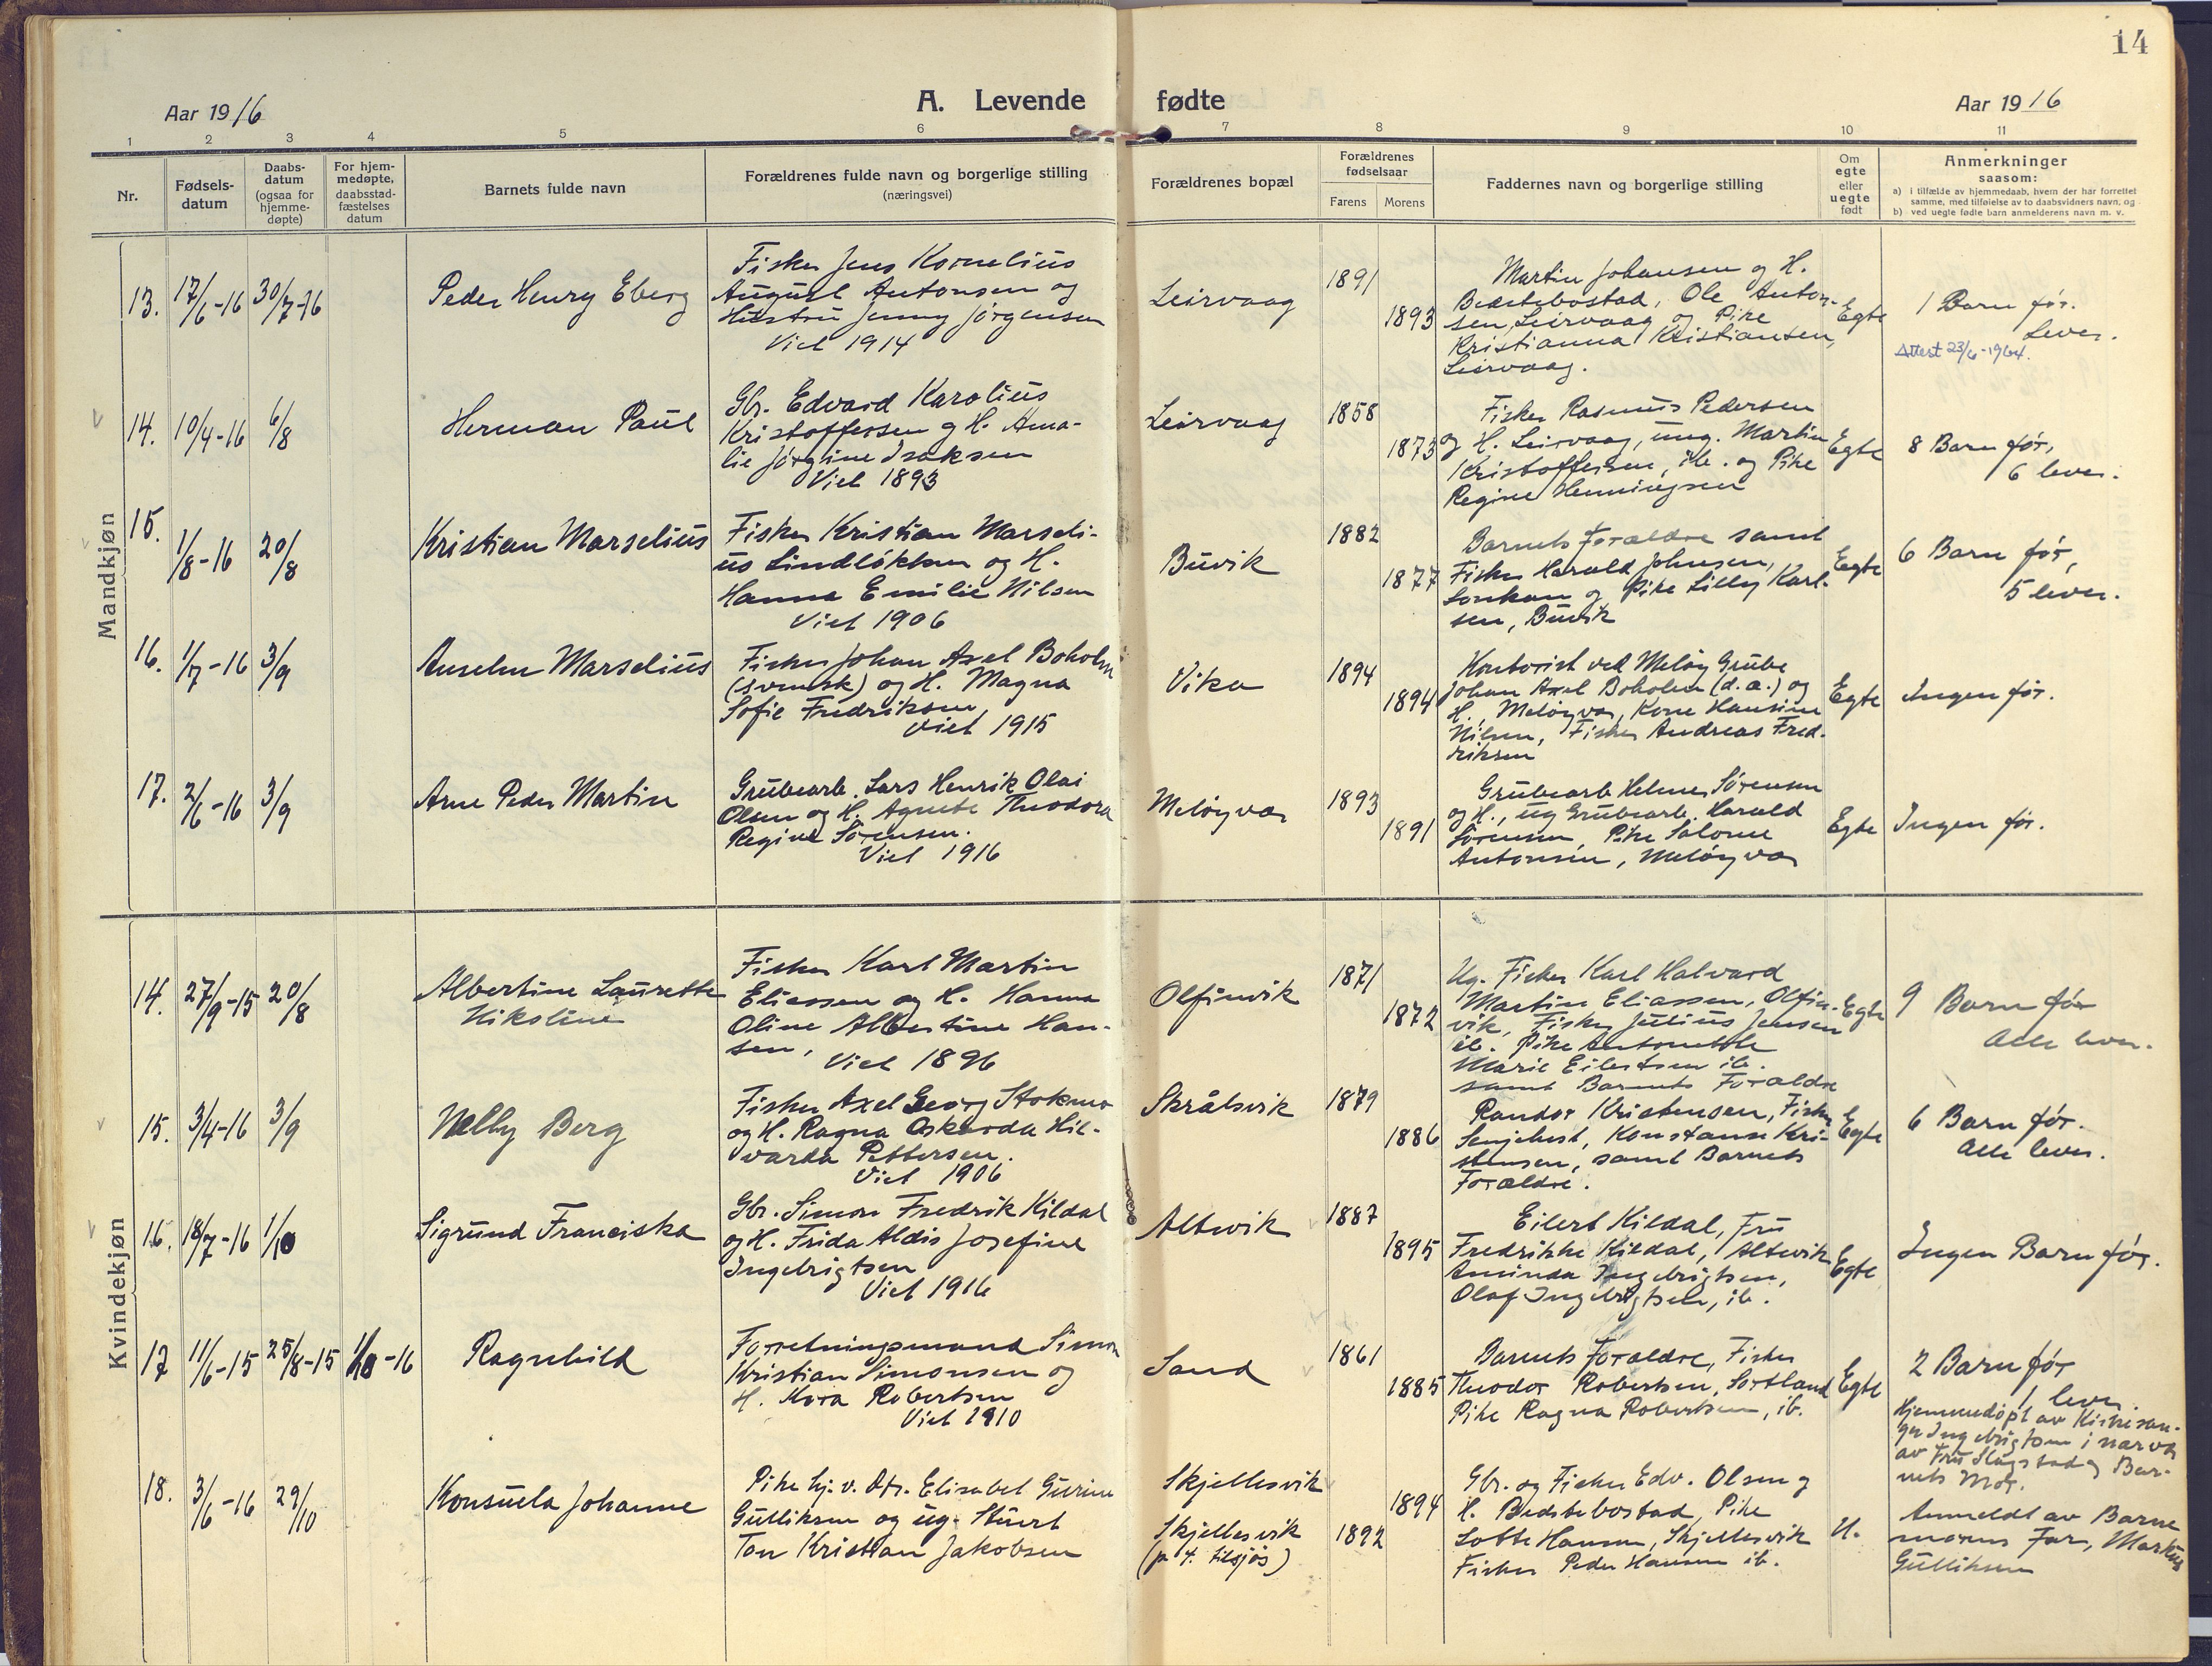 14
Aar 1916
A. Levende fødte
Aar 1916
1 2 3 4 5 6 7 8 9 10 11
Nr.
Fødsels-
datum
Daabs-
datum
(ogsaa for
hjemme-
døpte)
For hjem-
medøpte,
daabsstad-
fæstelses
datum
Barnets fulde navn
Forældrenes fulde navn og borgerlige stilling
(næringsvei)
Forældrenes bopæl
Forældrenes
fødselsaar
Farens Morens
Faddernes navn og borgerlige stilling
Om
egte
eller
uegte
født
Anmerkninger
saasom:
a) i tilfælde av hjemmedaab, hvem der har forrettet
samme, med tilføielse av to daabsvidners navn, og
b) ved uegte fødte barn anmelderens navn m. v.
Mandkjøn
13. 17/6-16 30/7-16
Peder Henry Eberg
Fisker Jens Kornelius
August Antonsen og
Hustru Jenny Jørgensen
Viet 1914
Leirvaag
1891
1893
Martin Johansen og H.
Bedstebostad, Ole Anton-
sen, Leirvaag og Pike
Kristianna Kristiansen,
Leirvaag.
Egte
1 Barn før.
Lever.
Attest 23/6-1964.
14. 10/4-16 6/8
Herman Paul
Gbr. Edvard Karolius
Kristoffersen og H. Ama-
lie Jørgine Isaksen
Viet 1893
Leirvaag
1858
1873
Fisker Rasmus Pedersen
og H. Leirvaag, ung. Martin
Kristoffersen, ib. og Pike
Regine Henningsen
Egte
8 Barn før,
6 lever.
15. 1/8-16 20/8
Kristian Marselius
Fisker Kristian Marseli-
us Lindløkken og H.
Hanna Emilie Nilsen
Viet 1906
Buvik
1882
1877
Barnets Forældre samt
Fisker Harald Johnsen,
og Pike Lilly Karl-
sen, Buvik
Egte
6 Barn før,
5 lever.
16. 1/7-16 3/9
Anselm Marselius
Fisker Johan Axel Boholm
(svensk) og H. Magna
Sofie Fredriksen
Viet 1915
Vika
1894
1894
Kontorist ved Meløy Grube
Johan Axel Boholm (d. a.) og
H., Meløyvær, Kone Hansine
Nilsen, Fisker Andreas Fred-
riksen
Egte
Ingen før.
17. 2/6-16 3/9
Arne Peder Martin
Grubearb. Lars Henrik Olai
Olsen og H. Agnete Theodora
Regine Sørensen.
Viet 1916
Meløyvær
1893
1891
Grubearb. Helmer Sørensen
og H., ug Grubearb. Harald
Sørensen, Pike Salome
Antonsen, Meløyvær
Egte
Ingen før.
Kvindekjøn
14. 27/9-15 20/8
Albertine Laurette
Nikoline
Fisker Karl Martin
Eliassen og H. Hanna
Oline Albertine Han-
sen,
Viet 1896
Olfinvik
1871
1872
Ug. Fisker Karl Halvard
Martin Eliassen, Olfin-
vik, Fisker Julius Jensen
ib. Pike Antonette
Marie Eilertsen ib.
samt Barnets Forældre
Egte
9 Barn før
Alle lever.
15. 3/4-16 3/9
Nelly Berg
Fisker Axel Georg Stokmo
og H. Ragna Oskarda Hil-
varda Pettersen.
Viet 1906
Skrålsvik
1879
1886
Randor Kristensen, Fisker
Konstanse Kri-
stensen, samt Barnets
Forældre.
Egte
6 Barn før.
Alle lever.
16. 18/7-16 1/10
Sigrund Franciska
Gbr. Simon Fredrik Kildal
og H. Frida Aldis Josefine
Ingebrigtsen
Viet 1916
Altervik
1887
1895
Eilert Kildal, Fru
Fredrikke Kildal, Altervik
Aminda Ingebrigtsen,
Olaf Ingebrigtsen, ib.
Egte
Ingen Barn før.
17 11/6-15 25/8-15 1/10-16
Ragnhild
Forretningsmand Simon
Kristian Simonsen og
H. Kora Robertsen
Viet 1910
Sand
1861
1885
Barnets Forældre, Fisker
Theodor Robertsen, Sortland
Pike Ragna Robertsen, ib.
Egte
2 Barn før
1 lever.
Hjemmedøpt av Kirkesan-
ger Ingebrigtsen i nærvær
av Fru Slagstad og Bar-
nets Mor.
18. 3/6-16 29/10
Konsuela Johanne
Pike hj. v. Dtr. Elisabet Gurine
Gulliksen og ug. Stuert
Tan Kristian Jakobsen
Skjellesvik
Skjellesvik
(p. t. tilsjøs)
1894
1892
Gbr. og Fisker Edv. Olsen og
H. Bedstebostad, Pike
Lotte Hansen, Skjellesvik
Fisker Peder Hansen ib.
U.
Anmeldt av Barne
morens Far, Markus
Gulliksen